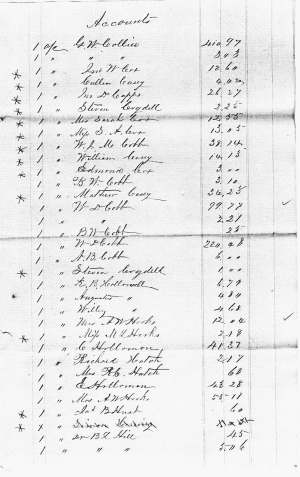 Accounts
1 a/c G. W. Collier 410.97
1 " " " 3.03
* 1 " Jas W Cox 12.60
* 1 " Cullen Casey
* 1 " Jno D Capps 26.27
* 1 " Steven Croydell 2.25
* 1 " Mrs Sarah Cox 12.55
* 1 " Miss S. A. Cox 13.05
* 1 " W. J. Mc Cobb 38.14
* 1 " William Casey 14.13
* 1 " Edmund Cox 3.00
1 " G W Cobb 3.10
* 1 " Mathew Casey 34.23
1 " W D Cobb 79.77
1 " " 2.21
1 " B W Cobb 25
1 " W D Cobb
1 " A. B. Cobb 6.00
* 1 " Steven Croydell 1.00
1 " E. B. Hollowell 6.79
1 " Augustus " 4.80
1 " Willy " 4.68
1 " Mrs A W Hooks 12.04
* 1 " Miss M. E. Hooks 2.18
1 " E Holloman 41.37
1 " Richard Hatch 2.17
1 " Mrs R. C. Hatch 60
1 " E Holloman 43.28
1 " Mrs A W Hooks 55.18
* 1 " B Hunt 60
* x "
1 " Dr B. F. Hill 45
1 " " " 5.06